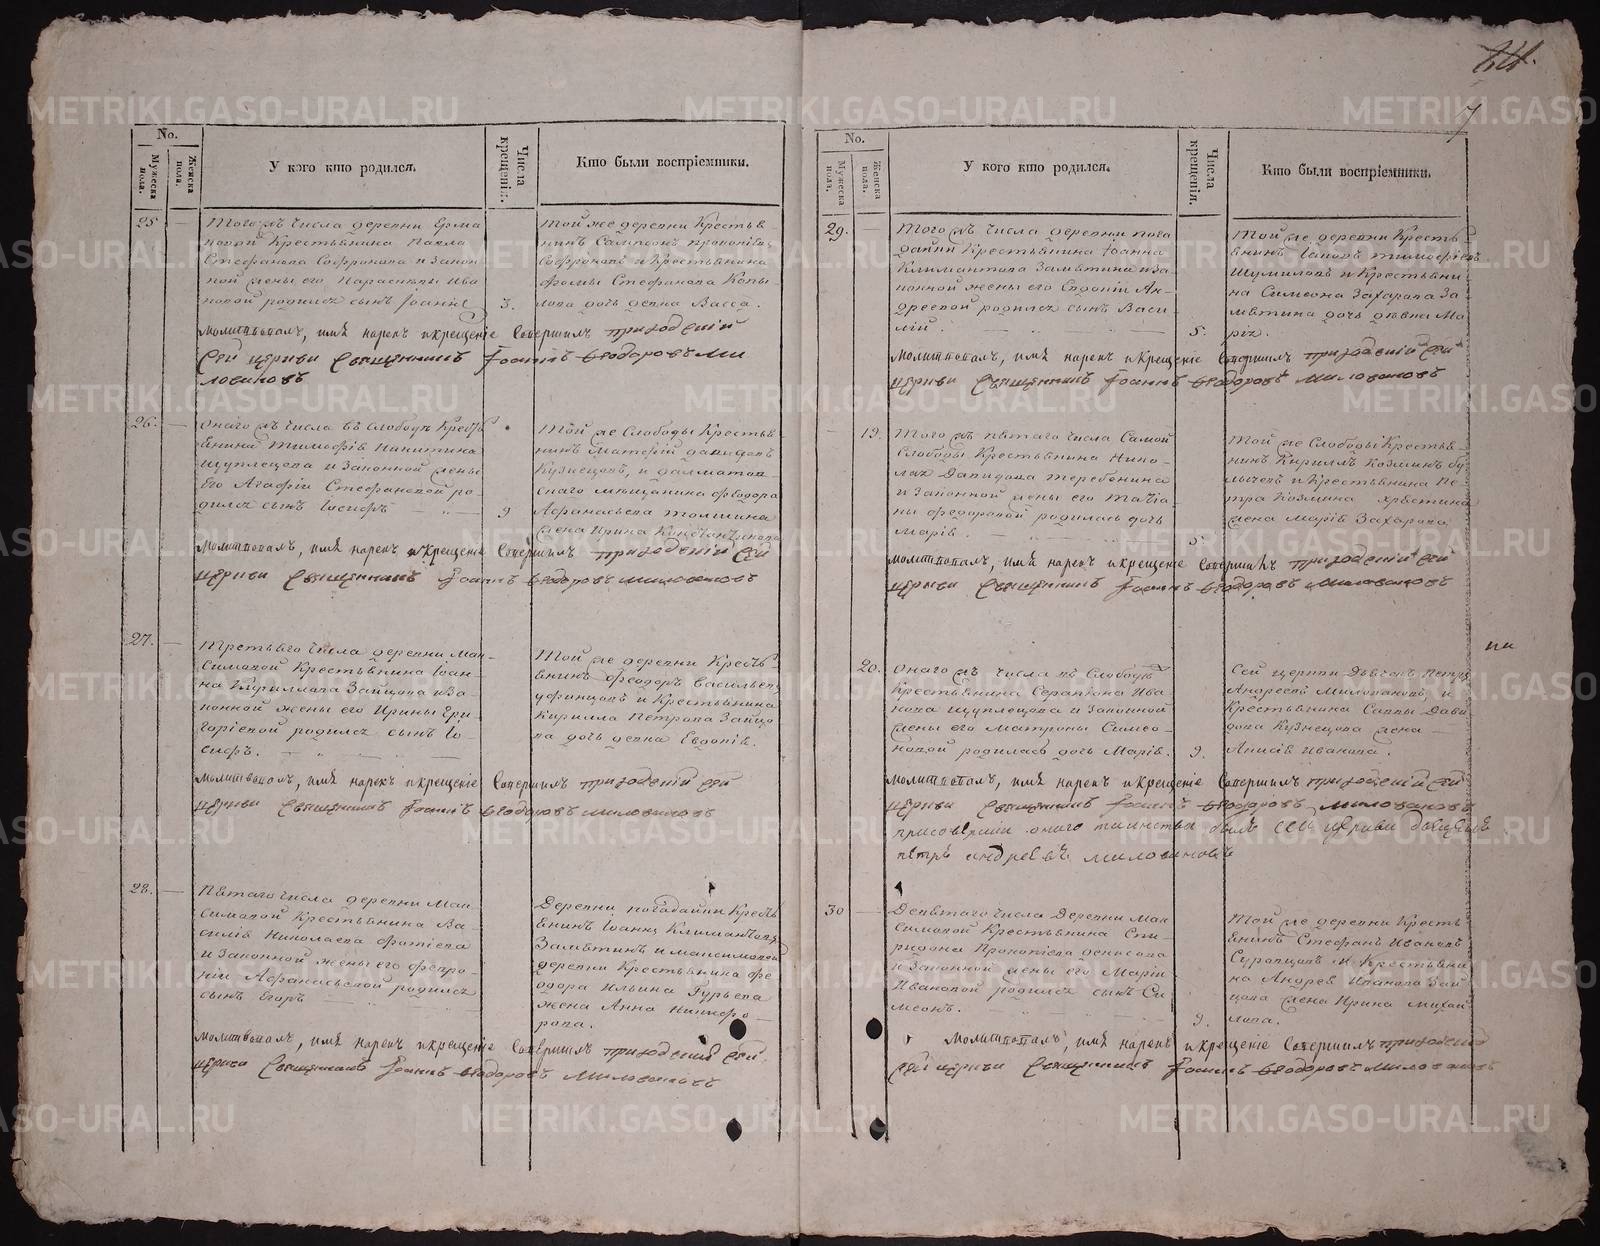 No.
Мужеска пола.
Женска пола.
У кого кто родился.
Числа крещенія.
Кто были воспріемники.
25
Того жъ числа деревни Ерма
ковой Крестьянина Павла
Стефанова Софронова и закон
ной жены его Параскевы Ива
новой родился сынъ Іоаннъ
3.
Той же деревни Крестья
нинъ Сампсонъ
Софроновъ и Крестьянина
Фомы Стефанова Копы
лова дочь девка Васса.
молитвовалъ, имя нарекъ и крещеніе Совершилъ приходскій
Сей церкви Священникъ Іоаннъ Феодоровъ Ми
ловановъ
26.
Онаго жъ числа въ Слободѣ Крестья
нина Тимофея Никитина
Щуплецова и законной жены
Его Агафіи Стефановой ро-
дился сынъ Іосифъ
9
Той же Слободы Крестья
нинъ Матвей Давидовъ
Кузнецовъ, и далматов
скаго мещанина Феодора
Афанасьева Толшина
жена Ирина
молитвовалъ, имя нарекъ и крещеніе Совершилъ приходскій Сей
церкви Священникъ Іоаннъ Феодоровъ Миловановъ
27.
Третьяго числа деревни Мак-
симовой Крестьянина Іоан-
на Кириллова Зайцова и за-
конной жены его Ирины Гри-
горіевой родился сынъ Іо-
сифъ.
Той же деревни Кресть-
янинъ Феодоръ Васильевъ
и Крестьянина
Кирилла Петрова Зайцо
ва дочь девка Евдокія.
молитвовалъ, имя нарекъ и крещеніе Совершилъ приходскій Сей
церкви Священникъ Іоаннъ Феодоровъ Миловановъ
28.
Пятаго числа деревни Мак
симовой Крестьянина Ва-
силія Николаева Фотіева
и законной жены его Февро-
ніи Афанасьевой родился
сынъ Егоръ
Деревни погадайки Кресть
янинъ Іоаннъ Климантовъ
Замятинъ и максимовой
деревни Крестьянина Фе
одора Ильина Гурьева
жена Анна Никифо-
рова.
молитвовалъ, имя нарекъ и крещеніе Совершилъ приходскій Сей
церкви Священникъ Іоаннъ Феодоровъ Миловановъ
7
No.
Мужеска пола.
Женска пола.
У кого кто родился.
Числа крещенія.
Кто были воспріемники.
29.
Того жъ числа деревни пога
дайки Крестьянина Іоанна
Климантова Замятина и за-
конной жены его Евдокіи Ан-
дреевой родился сынъ Васи-
лій.
5.
Той же деревни Кресть-
янинъ Іаковъ Тимофеевъ
Шумиловъ и Крестьяни-
на Симеона Захарова За-
мятина дочь девка Ма-
рія.
молитвовалъ, имя нарекъ и крещеніе Совершилъ приходскій Сей
церкви Священникъ Іоаннъ Феодоровъ Миловановъ
19.
Того жъ пятаго числа Самой
Слободы Крестьянина Нико-
лая Давидова Теребенина
и законной жены его Татіа-
ны Федоровой родилась дочь
Марія.
5
Той же Слободы Крестья-
нинъ Кириллъ Козминъ Бу
лычевъ и Крестьянина Пе-
тра Козмина
жена Марія Захарова
молитвовалъ, имя нарекъ и крещеніе Совершилъ приходскій Сей
церкви Священникъ Іоаннъ Феодоровъ Миловановъ
20.
Онаго жъ числа въ Слободѣ
Крестьянина Серапіона Ива
нова Щуплецова и законной
жены его Матроны Симео-
новой родилась дочь Марія.
9.
Сей церкви Дьячокъ Петръ
Андреевъ Миловановъ, и
Крестьянина Саввы Дави
дова Кузнецова жена
Анисія Иванова.
молитвовалъ, имя нарекъ и крещеніе Совершилъ приходскій Сей
церкви Священникъ Іоаннъ Феодоровъ Миловановъ
при совершеніи онаго таинства былъ Сей церкви дьячокъ
Петръ Андреевъ Миловановъ
30
Девятаго числа Деревни Мак
симовой Крестьянина Спи-
ридона Прокопіева Денисова
и законной жены его Маріи
Ивановой родился сынъ Си-
меонъ.
9.
Той же деревни Кресть
янинъ Стефанъ Ивановъ
и Крестьяни-
на Андрея Иванова Зай
цова жена Ирина Михай
лова.
молитвовалъ, имя нарекъ и крещеніе Совершилъ приходской
Сей церкви Священникъ Іоаннъ Феодоровъ Миловановъ
METRIKI.GASO-URAL.RU